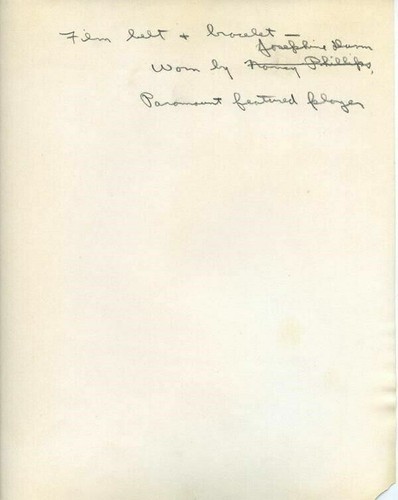 Film belt + bracelet —
Josephine Dunn
Worn by Nancy Phillips,
Paramount featured player